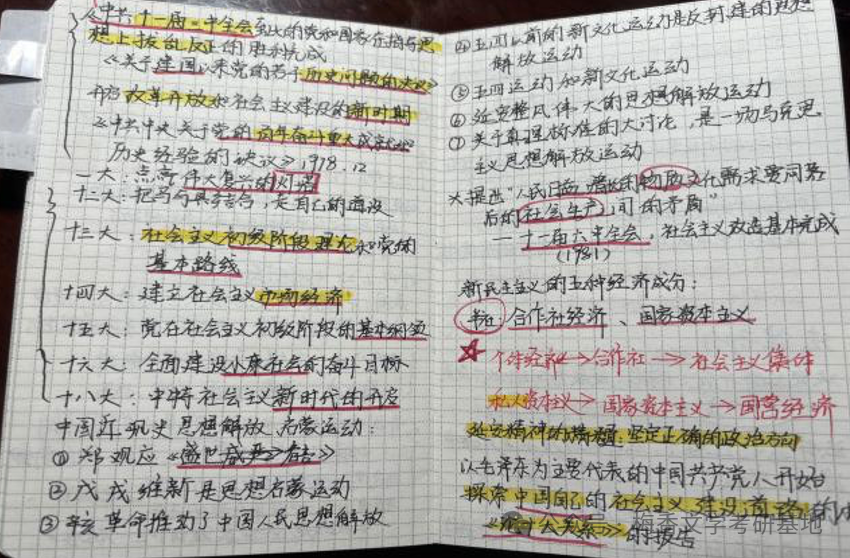 《中共十一届三中全会至大的党和国家在指导思
想上拨乱反正的胜利完成
《关于建国以来党的若干历史问题的决议》
开启改革开放和社会主义建设的新时期
《中共中央关于党的百年奋斗重大成就和
历史经验的决议》, 1978.12
一大：点亮伟大复兴的灯塔
十二大：把马与具结合，走自己的道设
十三大：社会主义初级阶段理论和党的
基本路线
十四大：建立社会主义市场经济
十五大：党在社会主义初级阶段的基本纲领
十六大：全面建设小康社会的奋斗目标
十八大：中特社会主义新时代的开启
中国近现史思想解放、启蒙运动：
① 郑观应《盛世危言》
② 戊戌维新是思想启蒙运动
③ 辛亥革命推动了中国人民思想解放
④ 五四以前的新文化运动是反封建的思想
解放运动
⑤ 五四运动和新文化运动
⑥ 延安整风伟大的思想解放运动
⑦ 关于真理标准的大讨论，是一场马克思
主义思想解放运动
大提出"人民日益增长的物质文化需求要同落
后的社会生产间的矛盾"
— 十一届六中全会，社会主义改造基本完成
(1981)
新民主主义的五种经济成分：
合作社经济、国家资本主义
☆ 个体经济→合作社→社会主义集体
私人资本主义→国家资本主义→国营经济
延安精神的精髓：坚定正确的政治方向
以毛泽东为主要代表的中国共产党人开始
探索中国自己的社会主义建设道路的
《论十大关系》的报告
文学考研基地